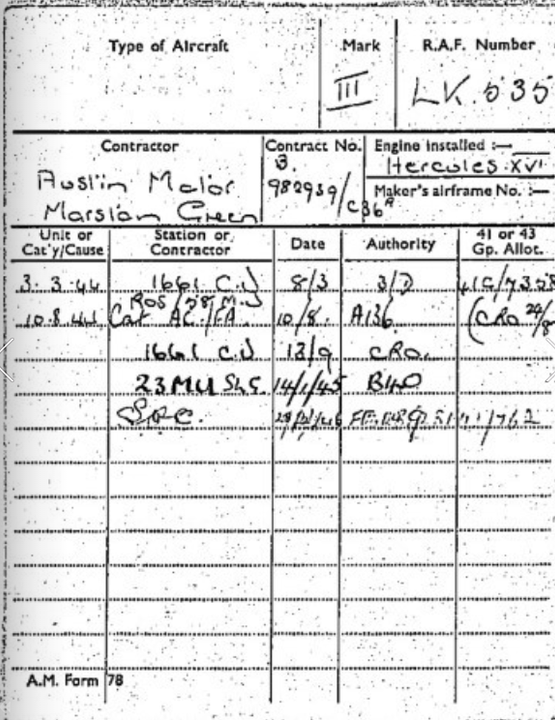 Type of Aircraft Mark R.A.F. Number
III LK.535
Contractor Contract No. Engine installed :—
B. Hercules XVI
Austin Motor 982939/C36A Maker's airframe No. :—
Marston Green
Unit or Cat'y/Cause Station or Contractor Date Authority 41 or 43 Gp. Allot.
3.3.44 1661 C.U 8/3 3/D
ROS/58 M.U
10.8.44 Cat AC/FA. 10/8. A136. (CRO 24/8
1661 C.U 13/9 CRO.
23MU SLS. 14/1/45 B40
S.O.C.
A.M. Form 78